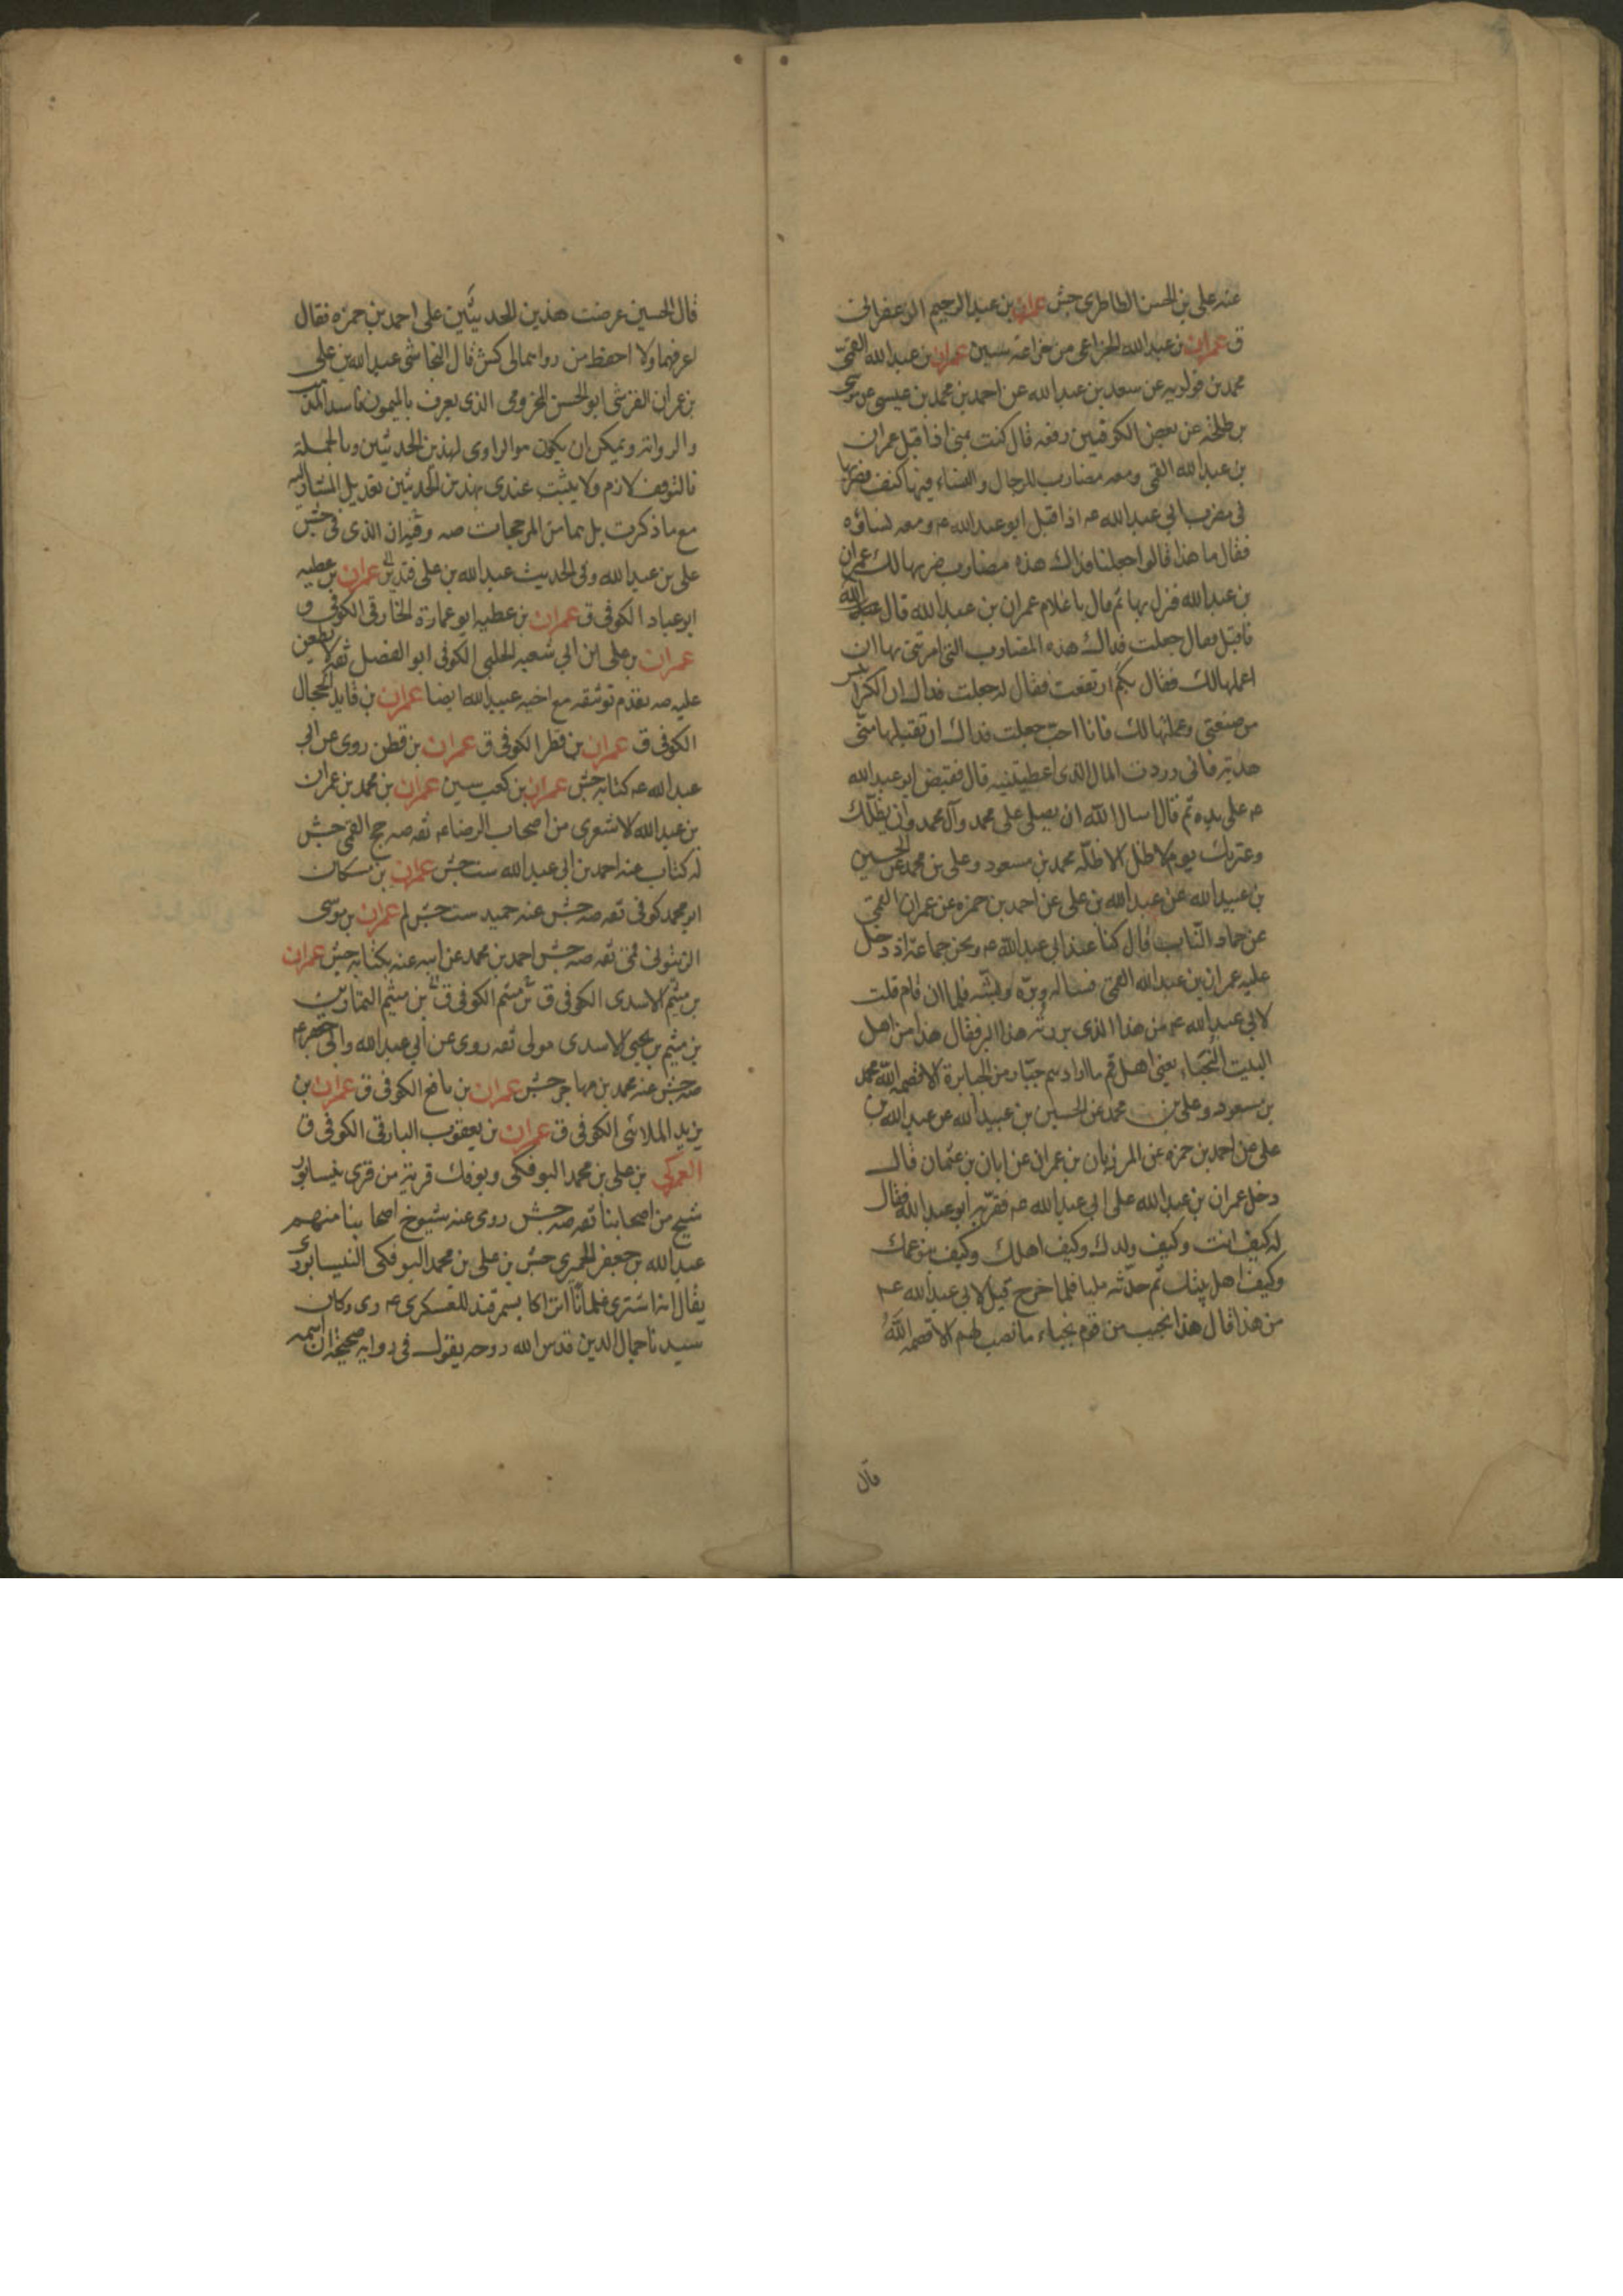 عنه على بن الحسن الطاطرى جش عمران بن عبد الرحيم الزعفرانى
ق عمران بن عبد الله الخزاعى من خزاعة سين عمران بن عبد الله القمى
محمد بن قولويه عن سعد بن عبد الله عن احمد بن محمد بن عيسى عن موسى
بن طلحه عن بعض الكوفيين رفعه قال كنت بمنى اذ اقبل عمران
بن عبد الله القمى ومعه مضارب للرجال والنساء فيها كنف فضربها
فى مضرب ابى عبد الله عه اذ اقبل ابو عبد الله عه ومعه نساؤه
فقال ما هذا قالوا جعلنا فداك هذه مضارب ضربها لك عمران
بن عبد الله فنزل بها ثم قال يا غلام عمران بن عبد الله قال
فاقبل فقال جعلت فداك هذه المضارب التى امرتنى بها ان
اعملها لك فقال بكم ارتفعت فقال له جعلت فداك ان الكرابيس
من صنعتى وعملتها لك فانا احب جعلت فداك ان تقبلها منى
هدية فانى رددت المال الذى اعطيتنيه قال فقبض ابو عبد الله
عه على يده ثم قال اسال الله ان يصلى على محمد وآل محمد وان يظلك
وعترتك يوم لا ظل الا ظله محمد بن مسعود وعلى بن محمد عن الحسين
بن عبيد الله عن عبد الله بن على عن احمد بن حمزه عن عمران القمى
عن حماد الناب قال كنا عند ابى عبد الله عه ونحن جماعة اذ دخل
عليه عمران بن عبد الله القمى فساله وبره وبشه فلما ان قام قلت
لابى عبد الله عه من هذا الذى بررته هذا البر فقال هذا من اهل
البيت النجباء يعنى اهل قم ما ارادهم جبار من الجبابرة الا قصمه الله محمد
بن مسعود وعلى بن محمد عن الحسين بن عبيد الله عن عبد الله بن
على عن احمد بن حمزه عن المرزبان بن عمران عن ابان بن عثمان قال
دخل عمران بن عبد الله على ابى عبد الله عه فقربه ابو عبد الله فقال
له كيف انت وكيف ولدك وكيف اهلك وكيف بنو عمك
وكيف اهل بيتك ثم حدثه مليا فلما خرج قيل لابى عبد الله عه
من هذا قال هذا نجيب من قوم نجباء ما نصب لهم الا قصمه الله
قال
قال الحسين عرضت هذين الحديثين على احمد بن حمزه فقال
اعرفهما ولا احفظ من رواهما لى كش قال النجاشى عبد الله بن على
بن عمران القرشى ابو الحسن المخزومى الذى يعرف بالميمون فاسد المذهب
والرواية ويمكن ان يكون هو الراوى لهذين الحديثين وبالجملة
فالتوقف لازم ولا يثبت عندى بهذين الحديثين تعديل المشار اليه
مع ما ذكرت بل هما من المرجحات صه وفيه ان الذى فى جش
على بن عبد الله وفى الحديث عبد الله بن على فتدبر عمران بن عطيه
ابو عباد الكوفى ق عمران بن عطيه ابو عمارة الخارقى الكوفى ق
عمران بن على ابن ابى شعبه الحلبى الكوفى ابو الفضل ثقه لا يطعن
عليه صه تقدم توثيقه مع اخيه عبيد الله ايضا عمران بن فايد الحجال
الكوفى ق عمران بن فطر الكوفى ق عمران بن قطن روى عن ابى
عبد الله عه كتابه جش عمران بن كعب سين عمران بن محمد بن عمران
بن عبد الله الاشعرى من اصحاب الرضا عه ثقه صه جخ القمى جش
له كتاب عنه احمد بن ابى عبد الله ست جش عمران بن مسكان
ابو محمد كوفى ثقه صه جش عنه حميد ست جش لم عمران بن موسى
الزيتونى قمى ثقه صه جش احمد بن محمد عن ابيه عنه بكتابه جش عمران
بن ميثم الاسدى الكوفى ق بن ميثم الكوفى ق بن ميثم التمار ين
بن ميثم بن يحيى الاسدى مولى ثقه روى عن ابى عبد الله وابى جعفر عه
صه جش عنه محمد بن مهاجر جش عمران بن نافع الكوفى ق عمران بن
يزيد الملائى الكوفى ق عمران بن يعقوب البارقى الكوفى ق
العمركى بن على بن محمد البوفكى وبوفك قرية من قرى نيسابور
شيخ من اصحابنا ثقه صه جش روى عنه شيوخ اصحابنا منهم
عبد الله بن جعفر الحميرى جش بن على بن محمد البوفكى النيسابورى
يقال انه اشترى غلمانا اتراكا بسمرقند للعسكرى عه رى وكان
سيدنا جمال الدين قدس الله روحه يقول فى رواية صحيحة ان اسمه